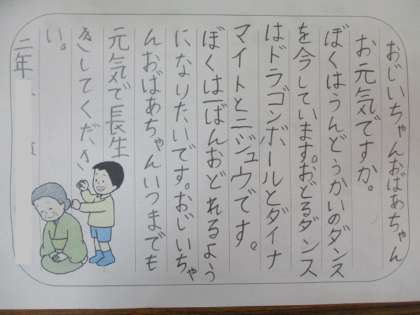 おじいちゃんおばあちゃん
お元気ですか。
ぼくはうんどうかいのダンス
を今しています。おどるダンス
はドラゴンボールとダイナ
マイトとニジュウです。
ぼくは一ばんおどれるよう
になりたいです。おじいちゃ
んおばあちゃんいつまでも
元気で長生
きしてくださ
い。
二年